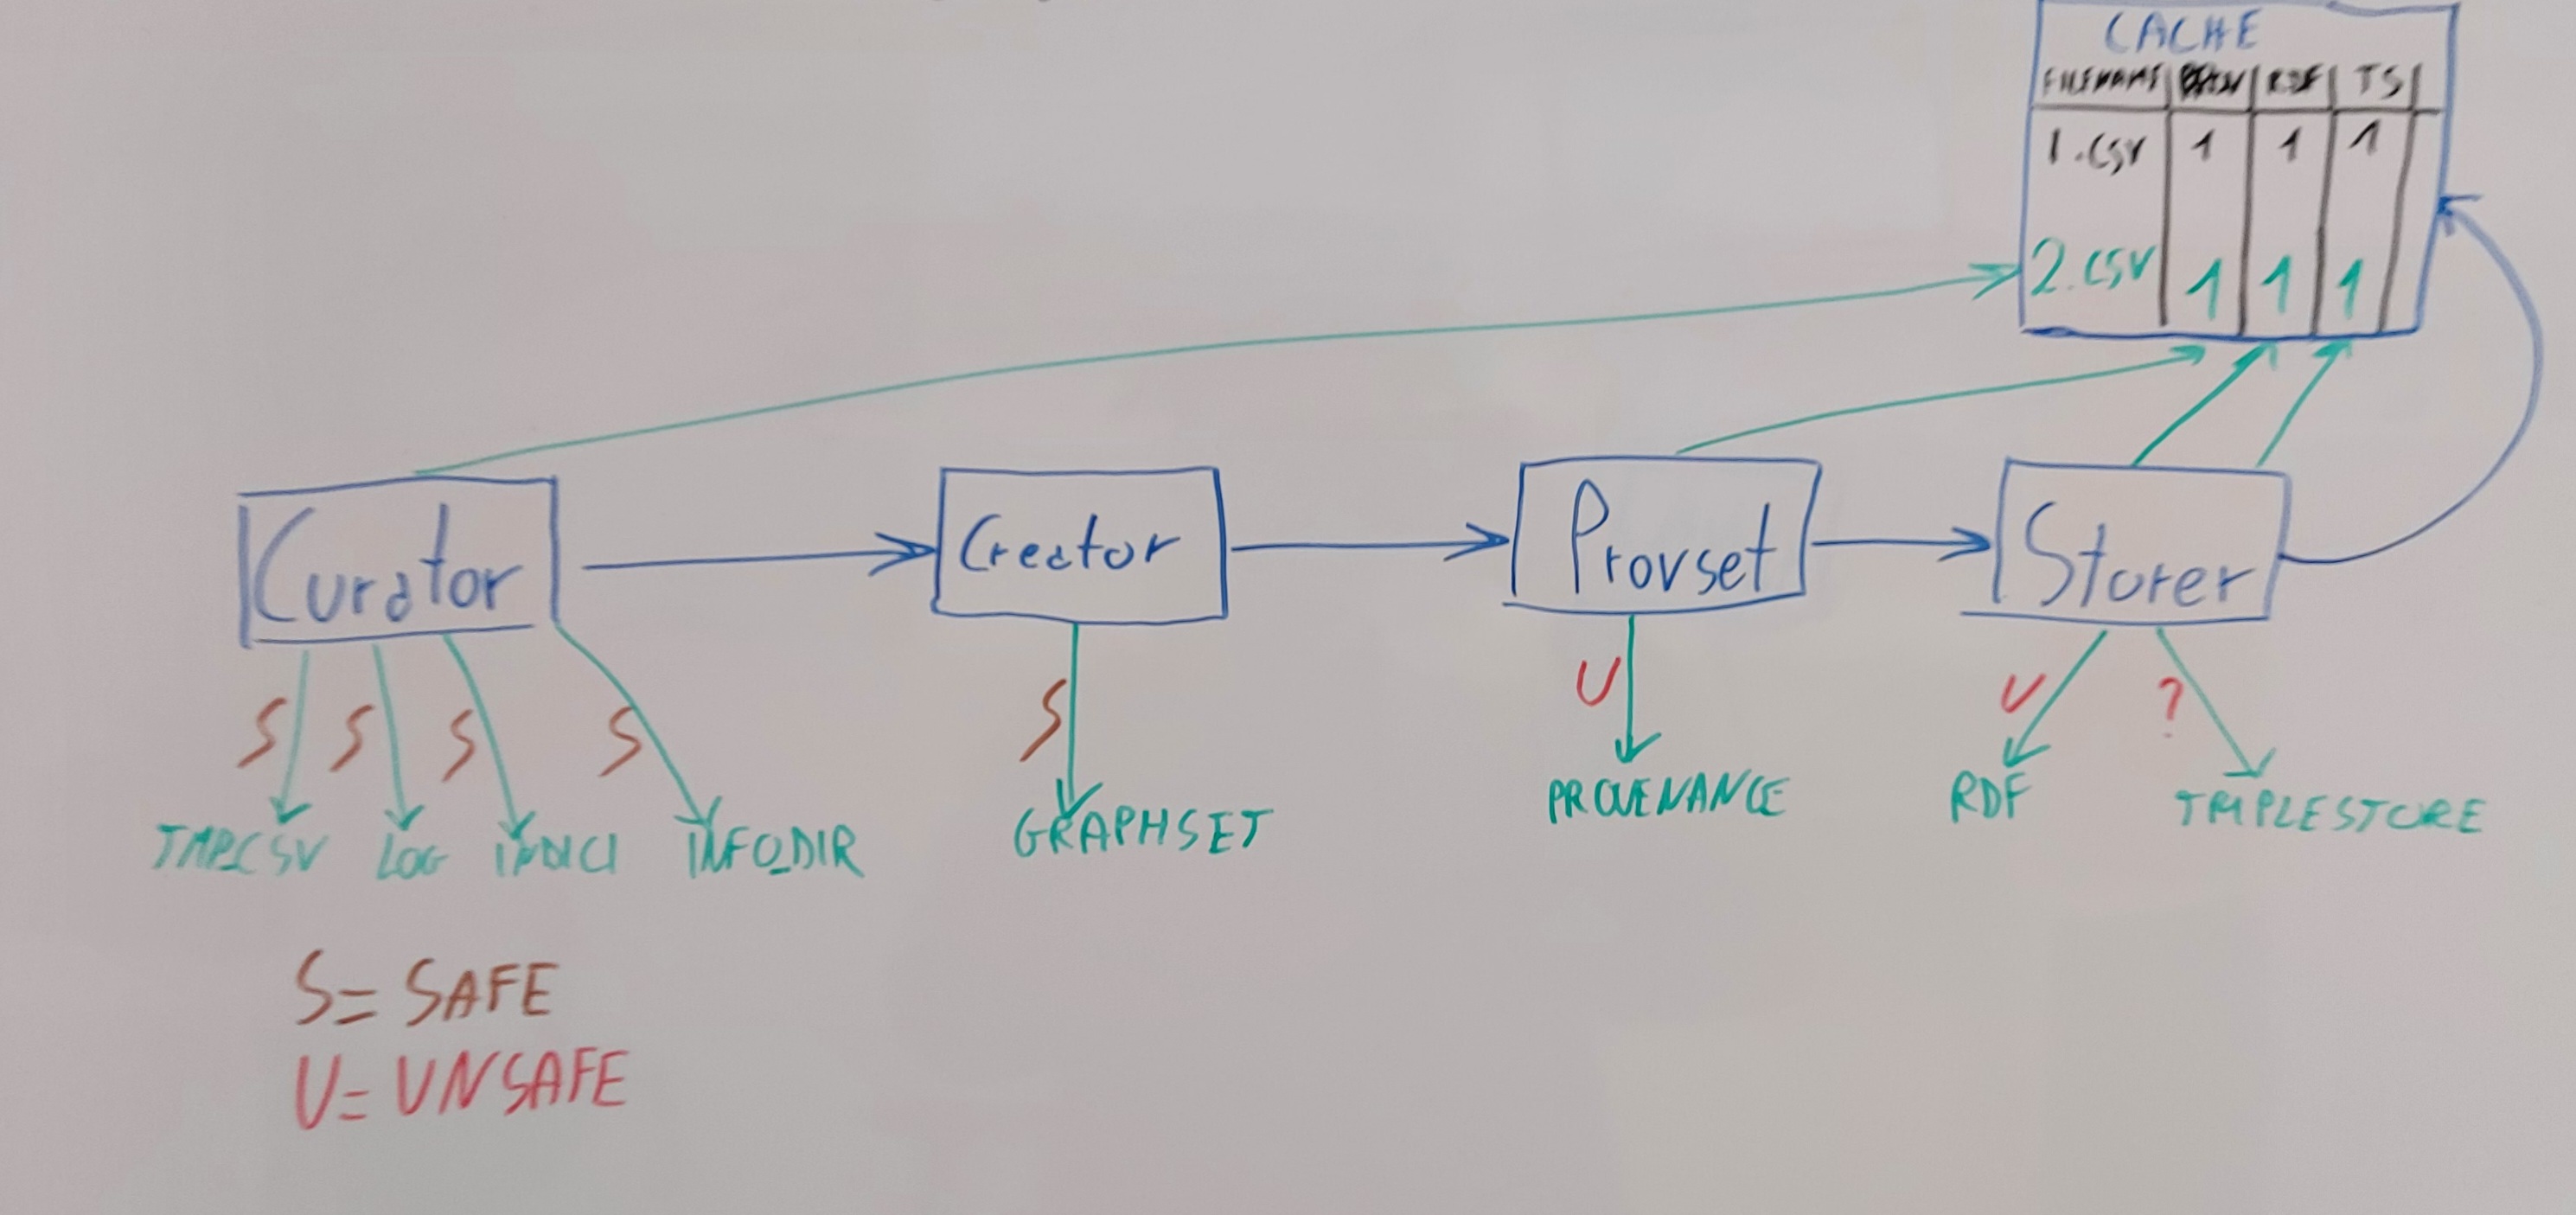 CACHE
FILENAME RDF TS
1.CSV 1 1 1
2.CSV 1 1 1
Curator Creator Provset Storer
S S S S S U U ?
TMP_CSV LOG INDICI INFO_DIR GRAPHSET PROVENANCE RDF TRIPLESTORE
S= SAFE
U= UNSAFE